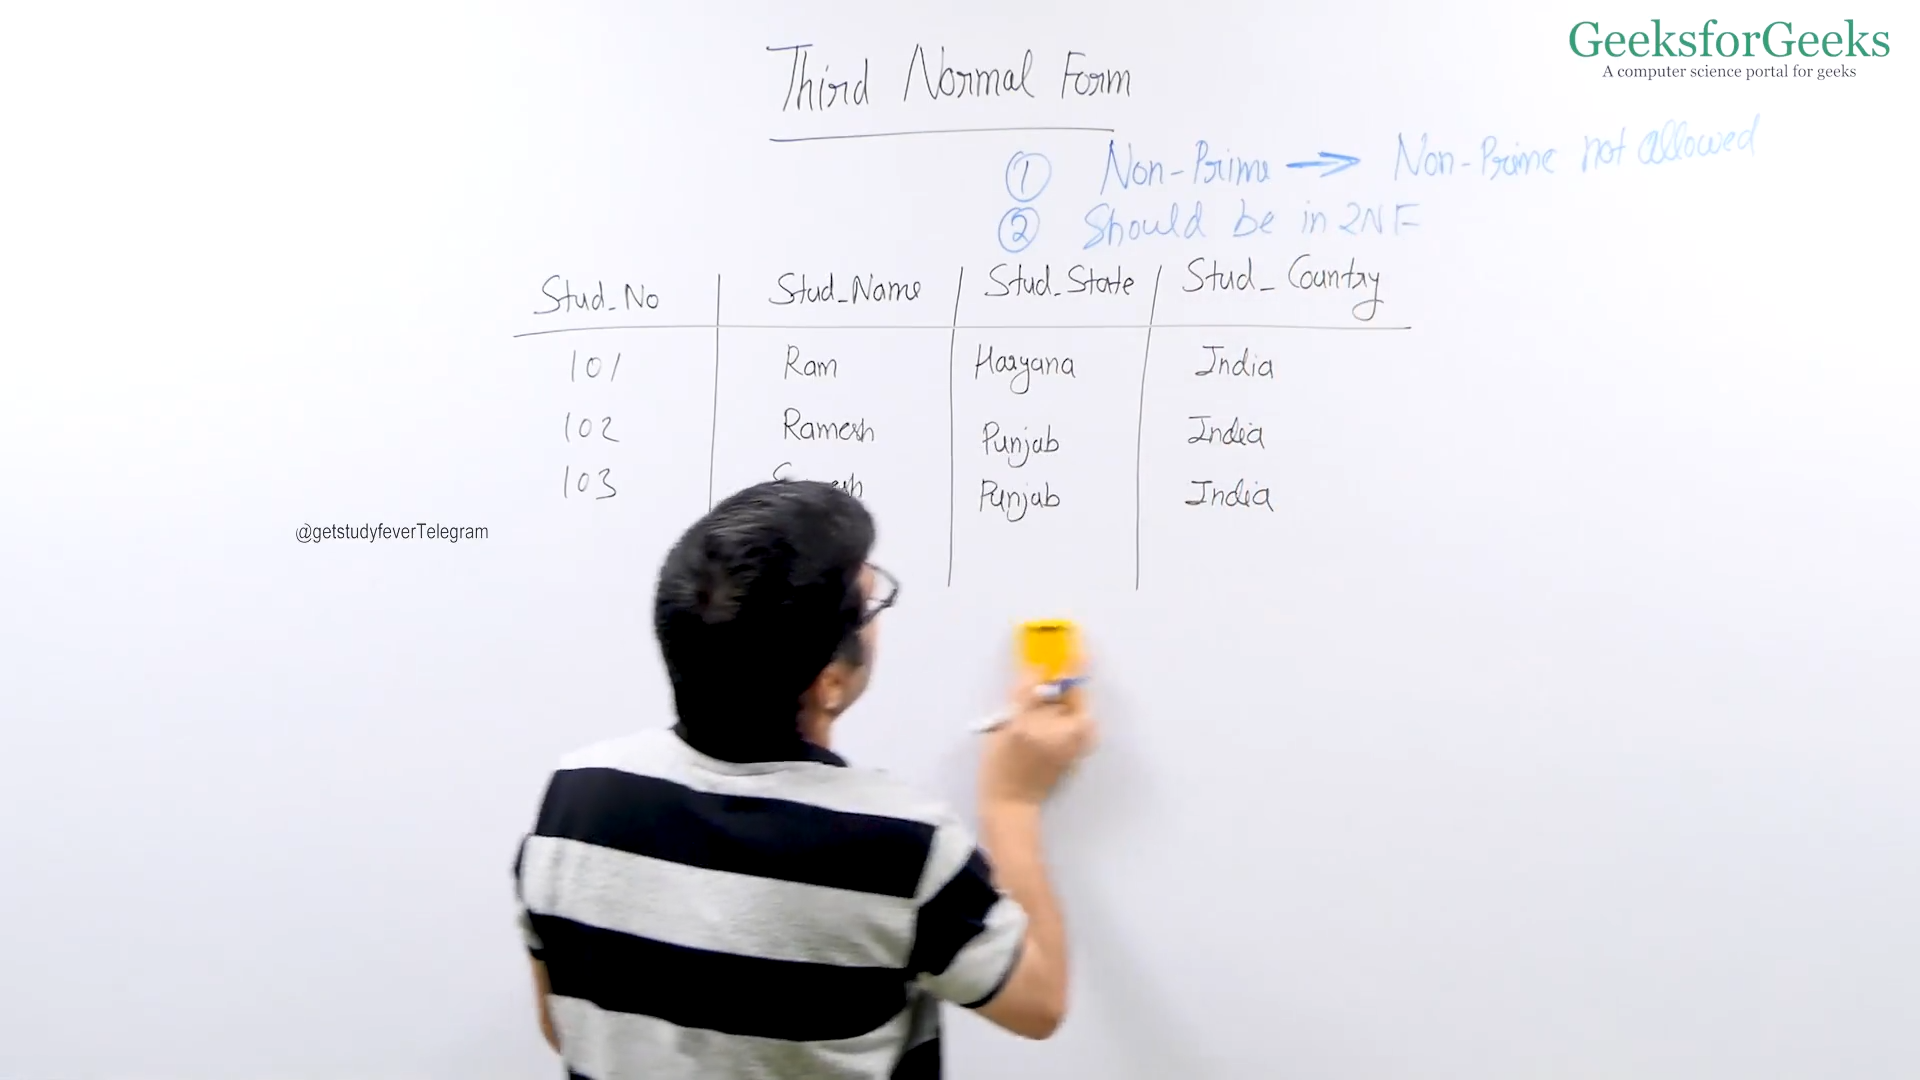 GeeksforGeeks
A computer science portal for geeks
Third Normal Form
① Non-Prime → Non-Prime not allowed
② Should be in 2NF
Stud_No Stud_Name Stud_State Stud_Country
101 Ram Haryana India
102 Ramesh Punjab India
103 Punjab India
@getstudyfeverTelegram